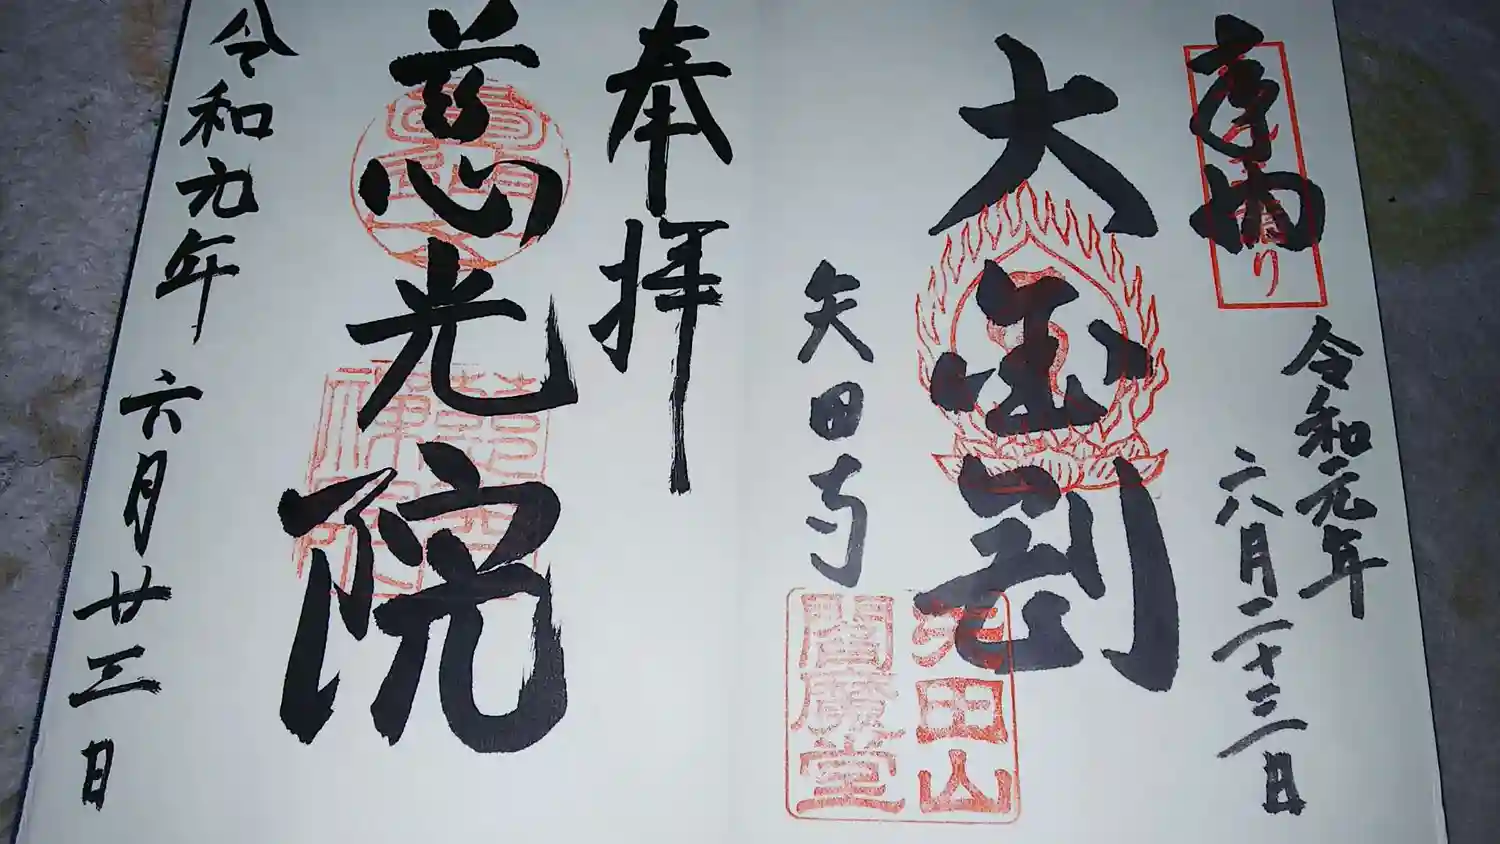 奉納
令和元年
六月二十三日
大金剛
矢田寺
矢田山
閻魔堂
奉拝
慈光院
令和元年
六月廿三日